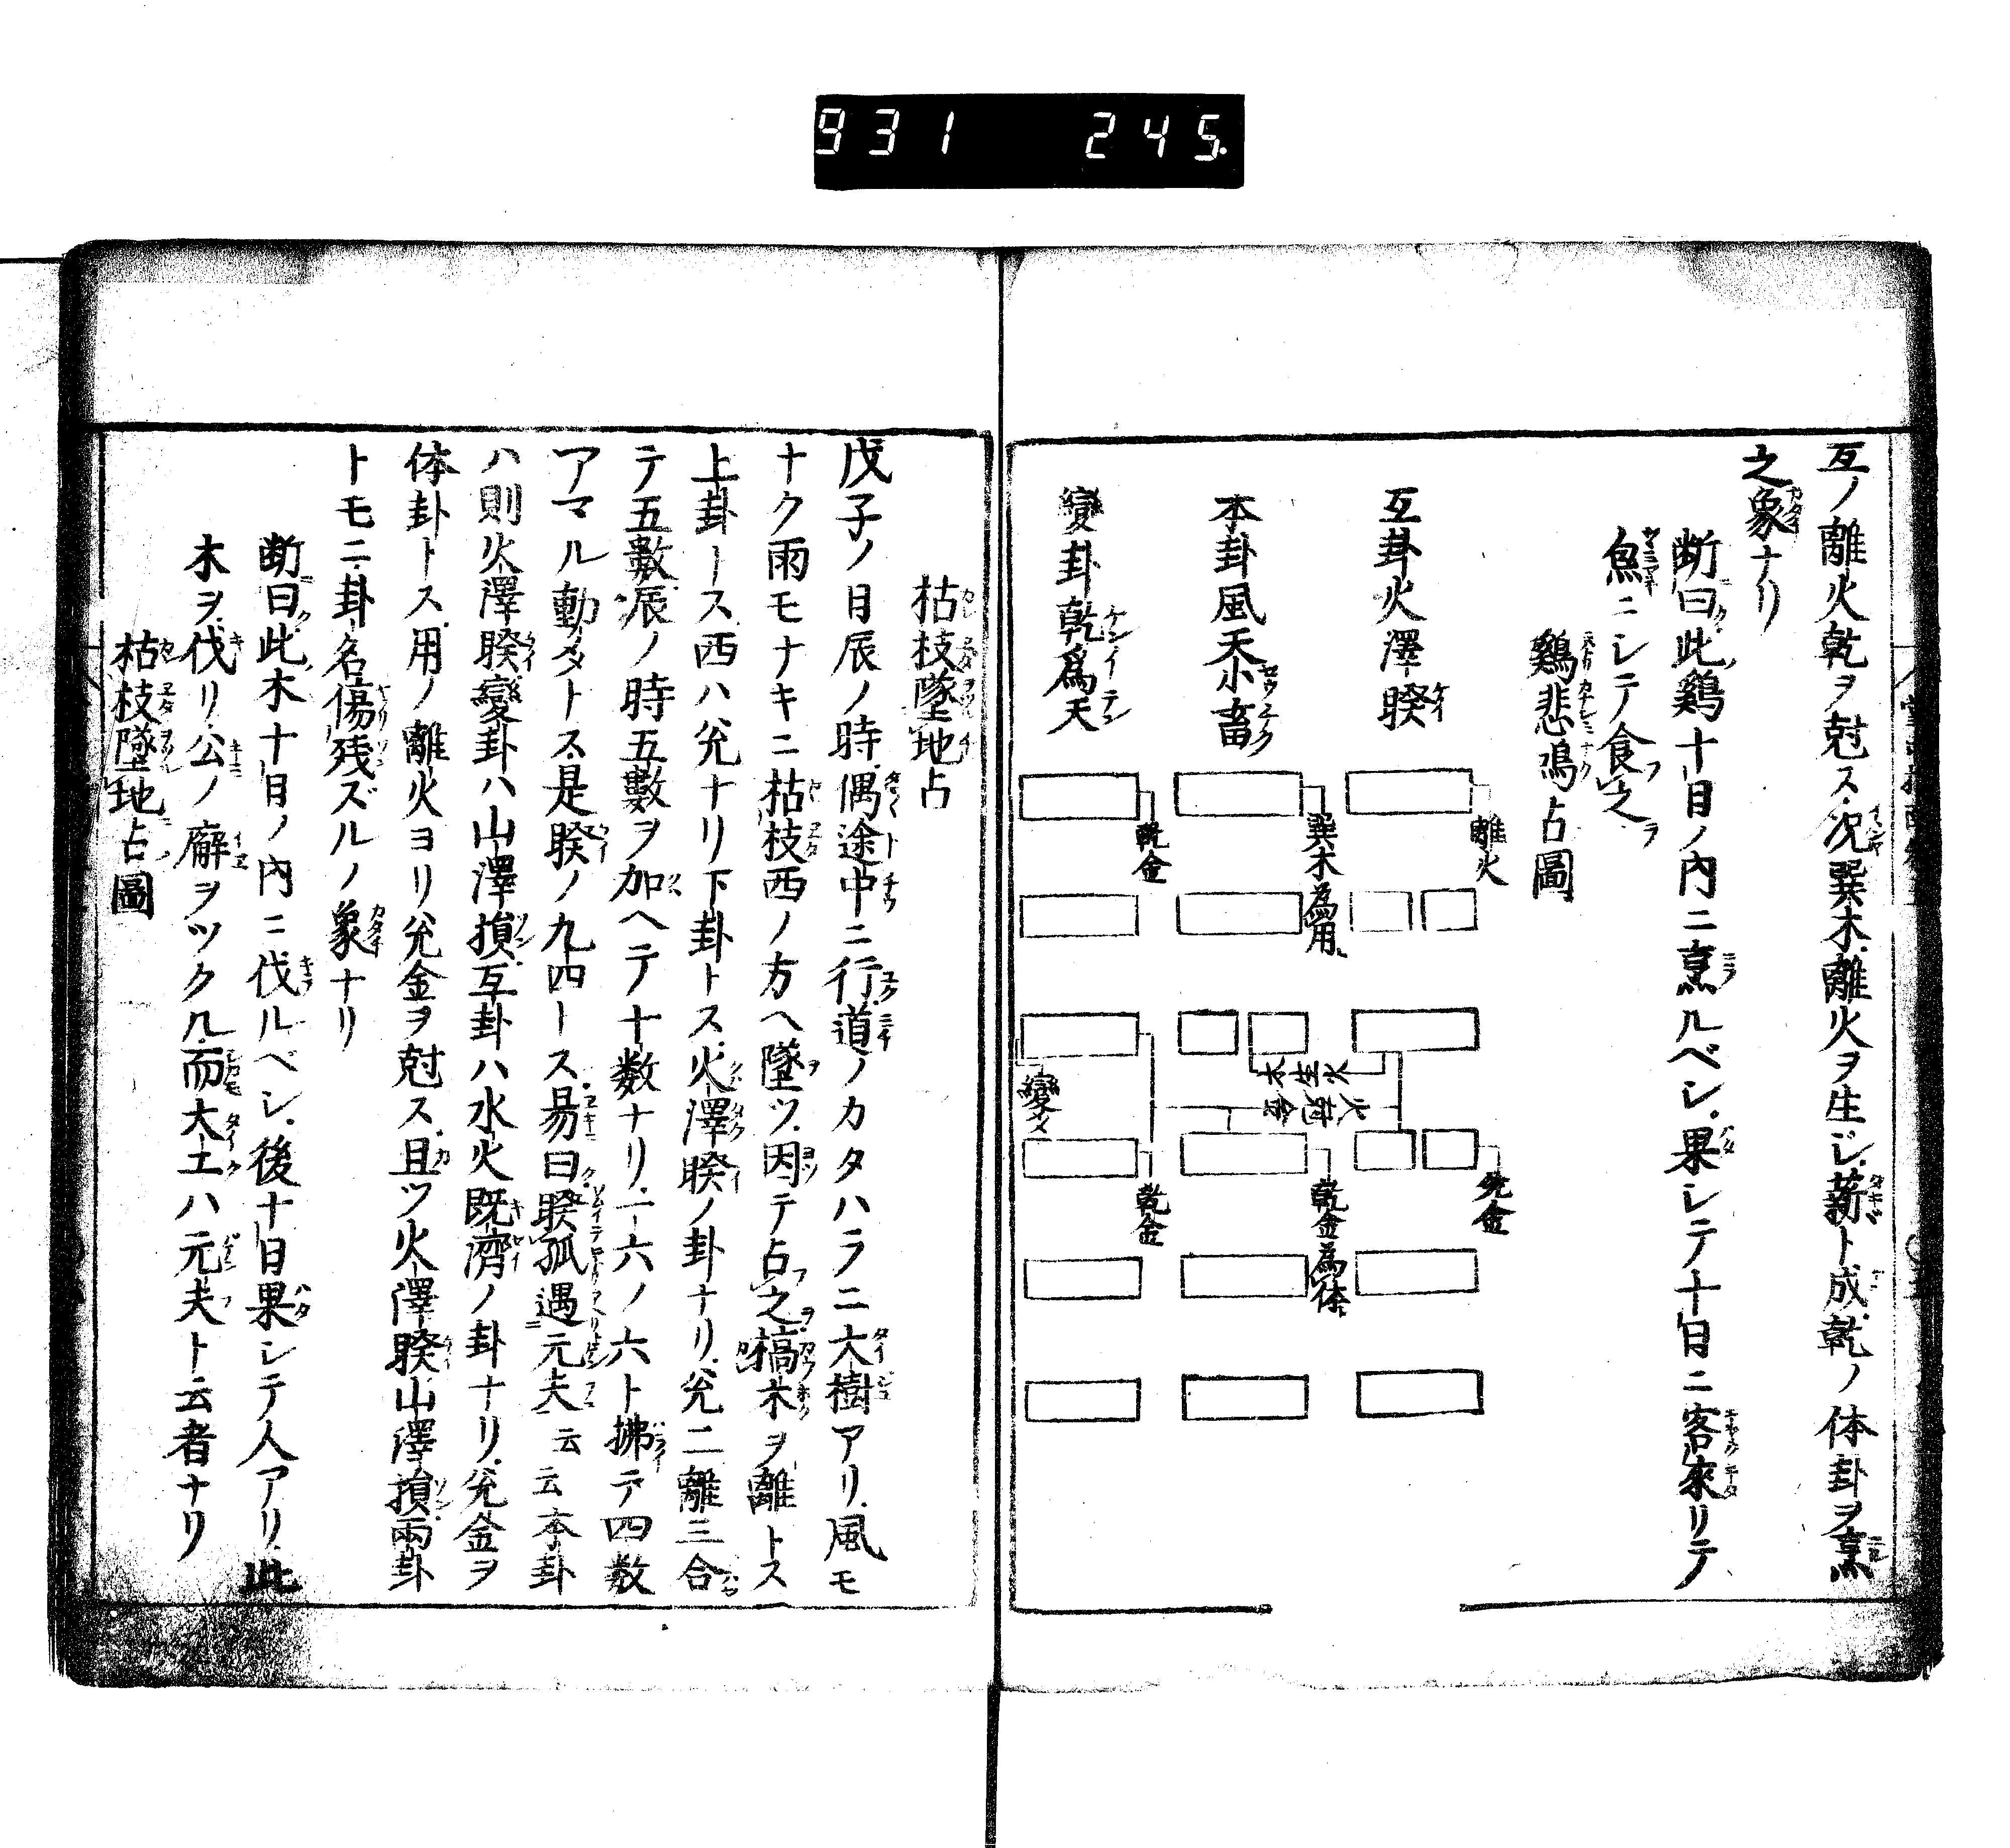 931 245.
互ノ離火乾ヲ尅ス況巽木離火ヲ生ジ薪ト成乾ノ体卦ヲ烹
之象ナリ
断曰此鶏十日ノ内ニ烹ルベシ果シテ十日ニ客来リテ
魚ニシテ食之
鶏悲鳴占圖
互卦火澤睽
離火
兊金
本卦風天小畜
巽木為用
木生火
火尅金
乾金為体
變卦乾爲天
乾金
變メ
乾金
枯枝墜地占
戊子ノ日辰ノ時偶途中ニ行道ノカタハラニ大樹アリ風モ
ナク雨モナキニ枯枝西ノ方ヘ墜ツ因テ占之槁木ヲ離トス
上卦トス西ハ兊ナリ下卦トス火澤睽ノ卦ナリ兊二離三合
テ五數辰ノ時五數ヲ加ヘテ十数ナリ一六ノ六ト拂テ四数
アマル動メトス是睽ノ九四トス昜曰睽孤遇元夫云云本卦
ハ則火澤睽變卦ハ山澤損互卦ハ水火既濟ノ卦ナリ兊金ヲ
体卦トス用ノ離火ヨリ兊金ヲ尅ス且ツ火澤睽山澤損兩卦
トモニ卦名傷残ズルノ象ナリ
断曰此木十日ノ内ニ伐ルベシ後十日果シテ人アリ此
木ヲ伐リ公ノ廨ヲツクル而大工ハ元夫ト云者ナリ
枯枝墜地占圖